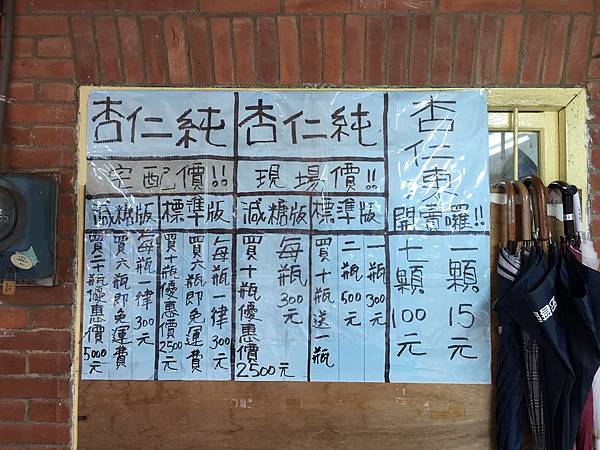 杏仁凍
開賣囉!!
一顆15元
七顆100元
杏仁純
現場價!!
標準版
一瓶300元
二瓶500元
買十瓶送一瓶
減糖版
每瓶300元
買十瓶優惠價2500元
杏仁純
宅配價!!
標準版
每瓶一律300元
買六瓶即免運費
買十瓶優惠價2500元
減糖版
每瓶一律300元
買六瓶即免運費
買二十瓶優惠價5000元